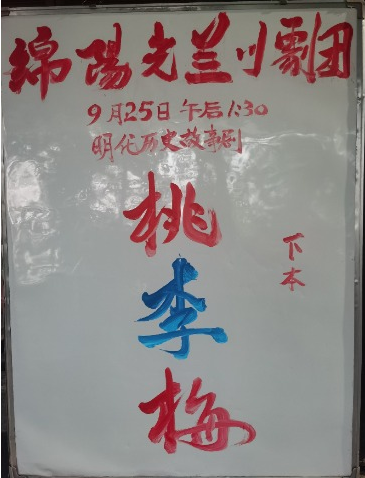 綿陽光兰川剧团
9月25日午后1:30
明代历史故事剧
桃李梅
下本